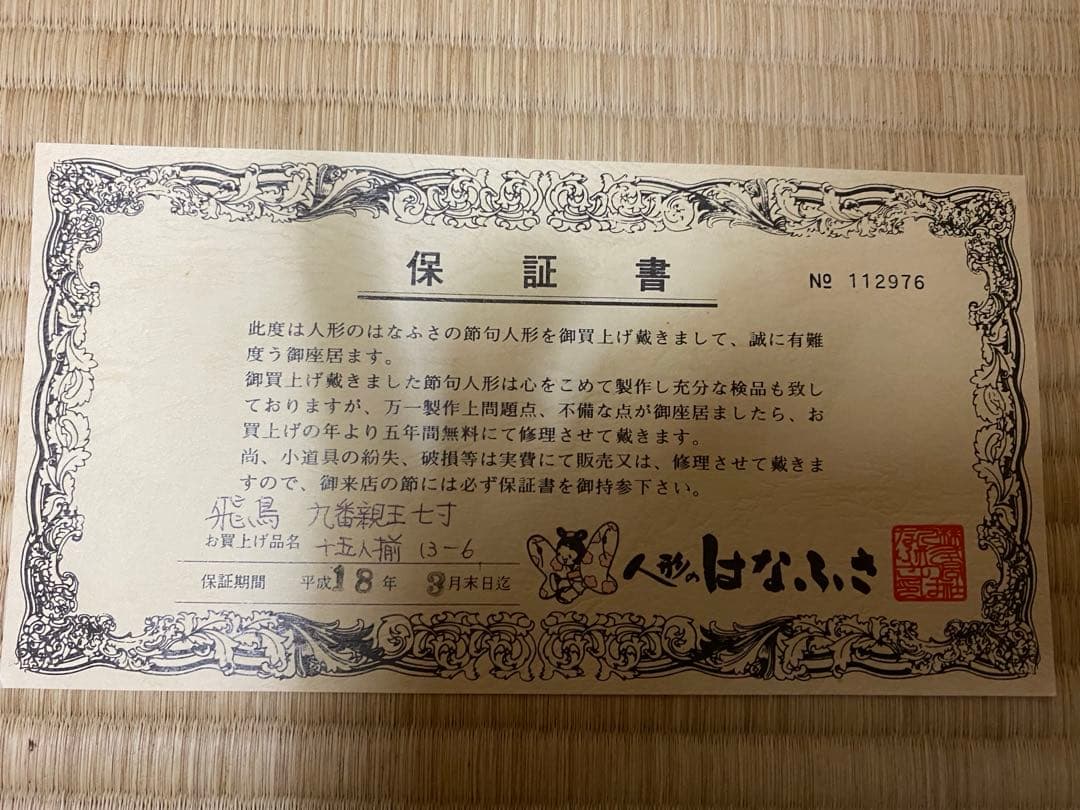 保証書
№ 112976
此度は人形のはなふさの節句人形を御買上げ戴きまして、誠に有難
度う御座居ます。
御買上げ戴きました節句人形は心をこめて製作し充分な検品も致し
ておりますが、万一製作上問題点、不備な点が御座居ましたら、お
買上げの年より五年間無料にて修理させて戴きます。
尚、小道具の紛失、破損等は実費にて販売又は、修理させて戴きま
すので、御来店の節には必ず保証書を御持参下さい。
飛鳥 九番親王七寸
お買上げ品名 十五人揃 13-6
保証期間 平成18年 3月末日迄
人形のはなふさ